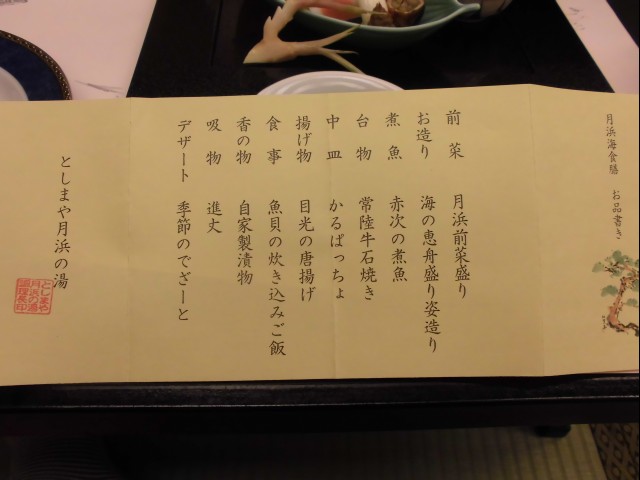 月浜海食膳　お品書き
前菜　月浜前菜盛り
お造り　海の恵舟盛り姿造り
煮魚　赤次の煮魚
台物　常陸牛石焼き
中皿　かるぱっちょ
揚げ物　目光の唐揚げ
食事　魚貝の炊き込みご飯
香の物　自家製漬物
吸物　進丈
デザート　季節のでざーと
としまや月浜の湯
としまや
月浜の湯
調理長印